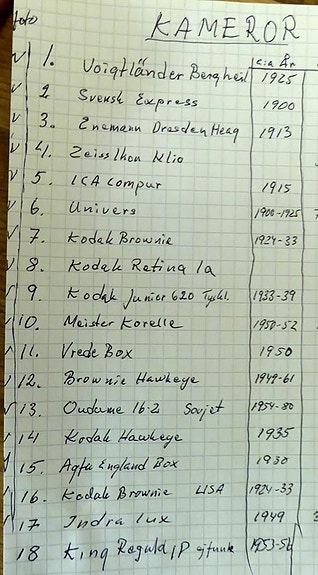 foto KAMEROR
c:a År
v 1. Voigtländer Bergheil 1925
v 2 Svensk Express 1900
v 3. Enemann Dresden Heag 1913
v 4. Zeiss Ikon Klio
v 5. ICA Compur 1915
v 6. Univers 1900-1925
v 7. Kodak Brownie 1924-33
v 8. Kodak Retina 1a
v 9. Kodak Junior 620 Tyskl. 1933-39
v 10. Meister Korelle 1950-52
v 11. Vrede Box 1950
v 12. Brownie Hawkeye 1949-61
v 13. 16-2 Sovjet 1954-80
v 14 Kodak Hawkeye 1935
v 15. Agfa England Box 1930
v 16. Kodak Brownie USA 1924-33
v 17 Indra Lux 1949
18 King Regula IP 1953-56